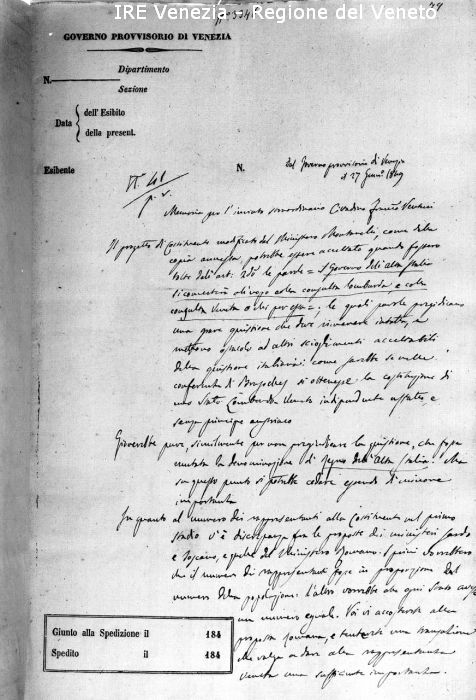 IRE Venezia - Regione del Veneto
N° 534
79
GOVERNO PROVVISORIO DI VENEZIA
Dipartimento
N.
Sezione
dell'Esibito
Data
della present.
Esibente
N.
Dal Governo provvisorio di Venezia
27 1849
N. 41
p. v.
Memoria per l'inviato straordinario Cittadino
Il progetto di Costituente modificato dal Ministero Montanelli, come dalla
copia annessa, potrebbe essere accettato quando fossero
tolte dall'art. le parole = Il Governo dell'alta Italia
colla consulta lombarda e colla
consulta Veneta =; le quali parole pregiudicano
una grave quistione che deve rimanere intatta, e
mettono ostacolo ad altri scioglimenti accettabili
della quistione italiana: come sarebbe se nelle
conferenze di Brusselles si ottenesse la costituzione di
uno Stato Lombardo Veneto indipendente affatto, e
senza principe austriaco
Gioverebbe pure, similmente per non pregiudicare la quistione, che fosse
mutata la denominazione di Regno dell'alta Italia: Ma
su questo punto si potrebbe cedere essendo di minore
importanza
In quanto al numero dei rappresentanti alla Costituente nel primo
stadio v'è discrepanza fra le proposte dei ministeri Sardo
e Toscano, e quella del Ministero Romano. I primi vorrebbero
che il numero dei rappresentanti fosse in proporzione del
numero della popolazione: l'altro vorrebbe che ogni Stato avesse
un numero eguale. Voi vi accosterete alla
proposta Romana, e tenterete una transazione
che valga a dare alla rappresentanza
veneta una sufficiente importanza.
Giunto alla Spedizione il 184
Spedito il 184